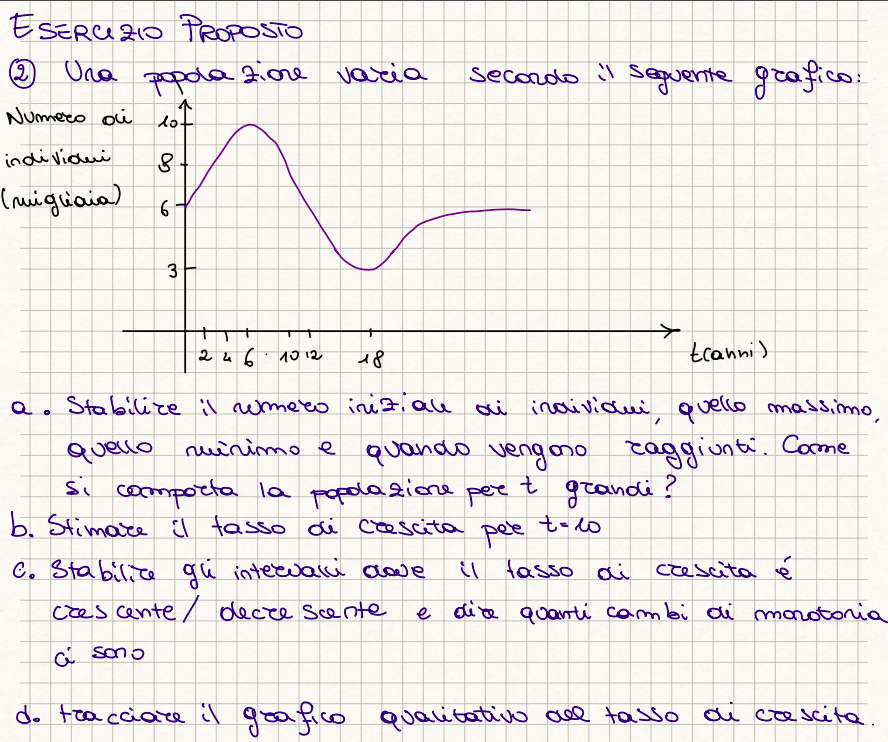 ESERCIZIO PROPOSTO
② Una popolazione varia secondo il seguente grafico:
Numero di
individui
(migliaia)
10
8
6
3
2 4 6 . 10 12 18
t(anni)
a. Stabilire il numero iniziale di individui, quello massimo,
quello minimo e quando vengono raggiunti. Come
si comporta la popolazione per t grandi?
b. Stimare il tasso di crescita per t=10
c. Stabilire gli intervalli dove il tasso di crescita é
crescente/decrescente e dire quanti cambi di monotonia
ci sono
d. tracciare il grafico qualitativo del tasso di crescita.